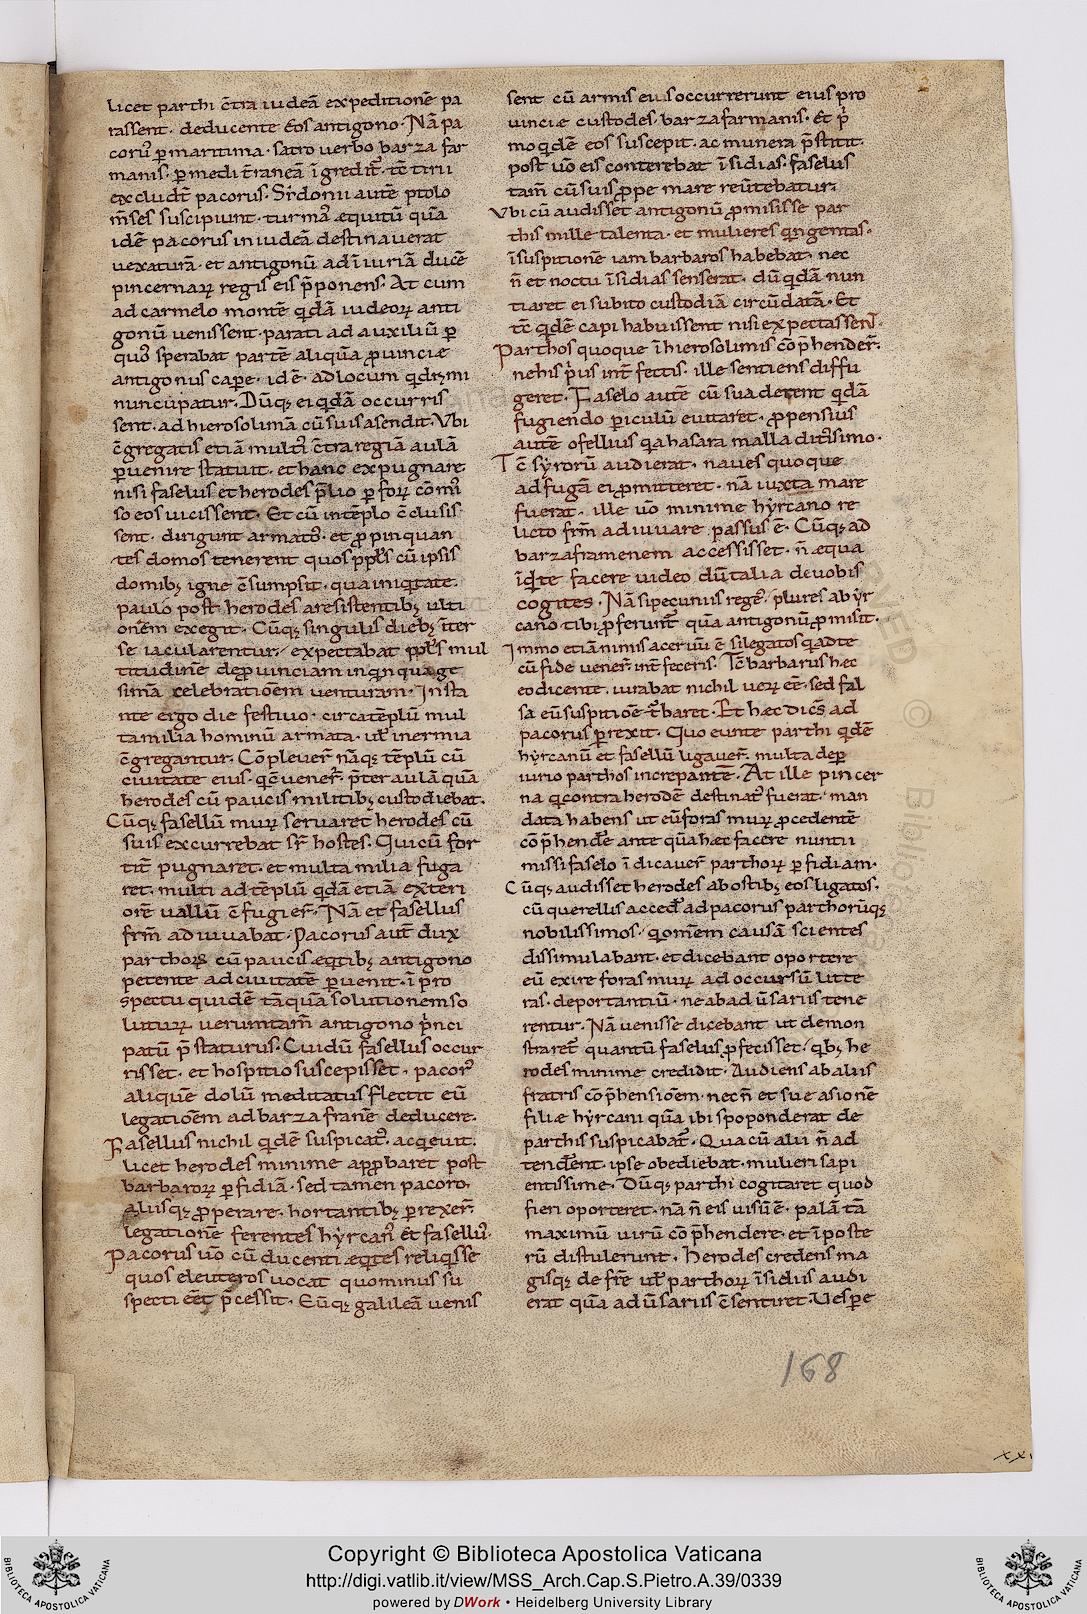 licet parthi c̄tra iudeā expeditionē pa
rassent. deducente Eos antigono. Nā pa
corꝰ ꝑ maritima. satro uerbo barza far
manis. ꝑ medit̄raneā īgredit᷑. tc̄ tirii
excludt̄ pacorus. Sr̄donii autē ptolo
m̄ses suscipiunt. turmas equitū quā
idē pacorus in iudeā destinauerat
uexaturā. et antigonū ad īiuriā ducē
pincernaꝝ regis eis p̄ponens. At cum
ad carmelo montē qdā iudeorꝰ anti
gonū uenissent. parati ad auxiliū ꝑ
quos sperabat partē aliquā ꝓuincie
antigonus caꝑe. idē. ad locum
nuncupatur. Dūqꝫ ei qdā occurris
sent. ad hierosolimā cū suis asendit. Vbi
c̄gregatis etiā multis c̄tra regiā aulā
ꝑuenire statuit. et hanc expugnare
nisi faselus et herodes p̄lio ꝑ foꝝ cōmis
so eos uicissent. Et cū intēplo c̄clusis
sent. dirigunt armatos. et ꝓpinquan
tes domos tenerent quos pp̄ls cū ipsis
domibꝫ igne c̄sumpsit. qua iniqtate.
paulo post herodes a resistentibꝫ ulti
onēm exegit. Cūqꝫ singulis diebꝫ īter
se iacularentur. expectabat pp̄ls mul
titudinē de ꝓuinciam in qnquage
simā celebratioēm uenturam. Insta
nte ergo die festiuo. circa tēplū mul
ta milia hominū armata. ul̄ inermia
c̄gregantur. Cōpleuer̄ nāqꝫ tēplū cū
ciuitate eius. qc̄ uener̄. p̄ter aulā quā
herodes cū paucis militibꝫ custodiebat.
Cūqꝫ fasellū muꝝ seruaret herodes cū
suis excurrebat sr̄ hostes. Qui cū for
tit̄ pugnaret. et multa milia fuga
ret. multi ad tēplū qdā etiā exteri
orē uallū c̄fugier̄. Nā et fasellus
frm̄ adiuuabat. Pacorus aut̄ dux
parthorꝫ cū paucis eqtibꝫ antigono
petente ad ciuitatē ꝑuenit. ī pro
spectu quidē tāquā solutionem so
luturꝰ. uerumtam̄ antigono p̄nci
patū p̄staturus. Cui dū fasellus occur
risset. et hospitio suscepisset. pacorꝰ
aliquē dolū meditatus flectit eū
legatioēm ad barza franē deducere.
Fasellus nichil qdē suspicatꝰ. acqeuit.
licet herodes minime apꝓbaret post
barbaroꝝ ꝑfidiā. sed tamen pacoro.
aliisqꝫ ꝓperare. hortantibꝫ ꝑrexer̄.
legationē ferentes hyrcanꝰ et fasellꝰ.
Pacorus uō cū ducenti eqtes reliqsse
quos eleuteros uocat quominus su
specti eēt p̄cessit. Eūqꝫ galileā uenis
sent cū armis eius occurrerunt eius pro
uincie custodes. barzafarmanis. Et p̄
mo qdē eos suscepit. ac munera p̄stitit.
post uō eis conterebat īsidias. faselus
tam̄ cū suis ꝓpe mare reūtebatur.
Vbi cū audisset antigonū ꝓmisisse par
this mille talenta. et mulieres qngentas.
īsuspitionē iam barbaros habebat. nec
n̄ et noctu īsidias senserat. dū qdā nun
tiaret ei subito custodiā circūdatā. Et
tc̄ qdē capi habuissent nisi expectassent.
Parthos quoque ī hierosolimis cōp̄hender̄.
nehis p̄us int̄fectis. ille sentiens diffu
geret. Faselo autē cū sua derent qdā
fugiendo ꝑiculū euitaret. ꝓpensius
autē ofellius qa hasara malla ditissimo.
Tc̄ syrorū audierat. naues quoque
ad fugā ei ꝓmitteret. nā iuxta mare
fuerat. ille uō minime hyrcano re
licto frm̄ adiuuare passus ē. Cūqꝫ ad
barzaframenem accessisset. n̄ equa
facere uideo dū talia de uobis
cogites. Nā si pecuniis reges. plures ab yr
cano tibi ꝓferunt quā antigonū ꝓmisit.
Immo etiā nimis aceruū ē si legatos q ad te
cū fide uener̄. int̄feceris. Tc̄ barbarus hec
eo dicente. iurabat nichil ueꝝ eē. sed fal
sa eū suspitioē t̄baret. Et hec dicēs ad
pacorus ꝑrexit. Quo eunte parthi qdē
hyrcanū et fasellū ligauer̄. multa de ꝑ
iurio parthos increpantē. At ille pincer
na q contra herodē destinatꝰ fuerat. man
data habens ut eū foras muꝝ ꝓcedentē
cōp̄hende ante quā hec facere nuntii
missi faselo īdicauer̄ parthoꝝ ꝑfidiam.
Cūqꝫ audisset herodes ab ostibꝫ eos ligatos.
cū querellus acced̄ ad pacorus parthorūqꝫ
nobilissimos. qom̄em causā scientes
dissimulabant. et dicebant oportere
eū exire foras muꝝ ad occursū litte
ras. deportantiū. ne ab adūsariis tene
rentur. Nā uenisse dicebant ut demon
straret quantū faselus ꝓfecisset. qbꝫ he
rodes minime credidit. Audiens ab aliis
fratris cōp̄hensioēm. nec n̄ et sue asionē
filie hyrcani quā ibi spoponderat de
parthis suspicabat᷑. Qua cū alii n̄ ad
tenderent. ipse obediebat. mulieri sapi
entissime. Dūqꝫ parthi cogitaret quod
fieri oporteret. nā n̄ eis uisū ē. palā tā
maximū uirū cōp̄hendere. et ī poste
rū distulerunt. herodes credens ma
gisqꝫ de fr̄e ul̄ parthoꝝ īsidiis audi
erat quā adūsariis c̄sentiret. Vesꝑe
168
Copyright © Biblioteca Apostolica Vaticana
http://digi.vatlib.it/view/MSS_Arch.Cap.S.Pietro.A.39/0339
powered by DWork • Heidelberg University Library
BIBLIOTECA APOSTOLICA VATICANA
BIBLIOTECA APOSTOLICA VATICANA